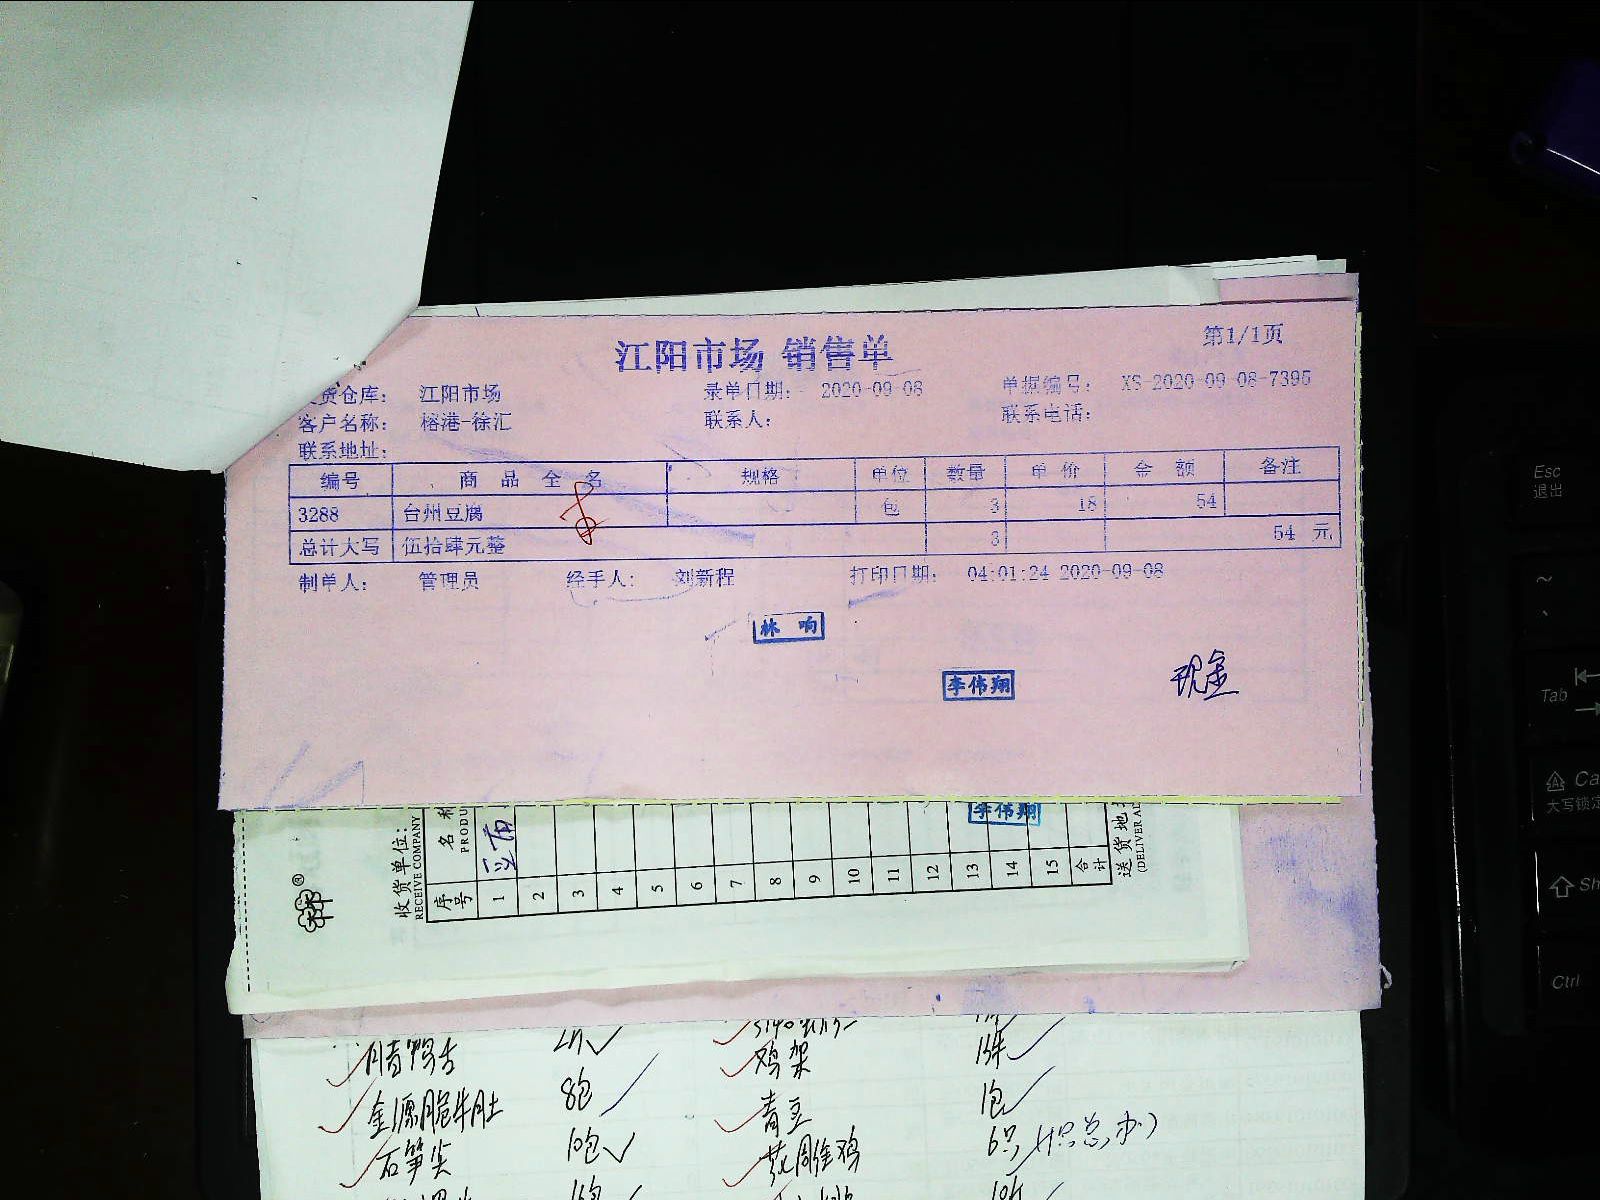 第1/1页
江阳市场 销售单
货仓库： 江阳市场 录单日期： 2020-09-08 单据编号： XS-2020-09-08-7395
客户名称： 榕港-徐汇 联系人： 联系电话：
联系地址：
编号 商品全名 规格 单位 数量 单价 金额 备注
3288 台州豆腐 包 3 18 54
总计大写 伍拾肆元整 3 54 元
制单人： 管理员 经手人： 刘新程 打印日期： 04:01:24 2020-09-08
林响
李伟翔
现金
李伟翔
收货单位：
RECEIVE COMPANY
序号 名称
PRODU
1 2 3 4 5 6 7 8 9 10 11 12 13 14 15 合计
送货地
(DELIVER AD
鸡架
金源脆牛肚 8包 青豆 1包
石笋尖 10包 花雕鸡 6只
Esc
退出
~
Tab
Ca
大写锁定
Sh
Ctrl